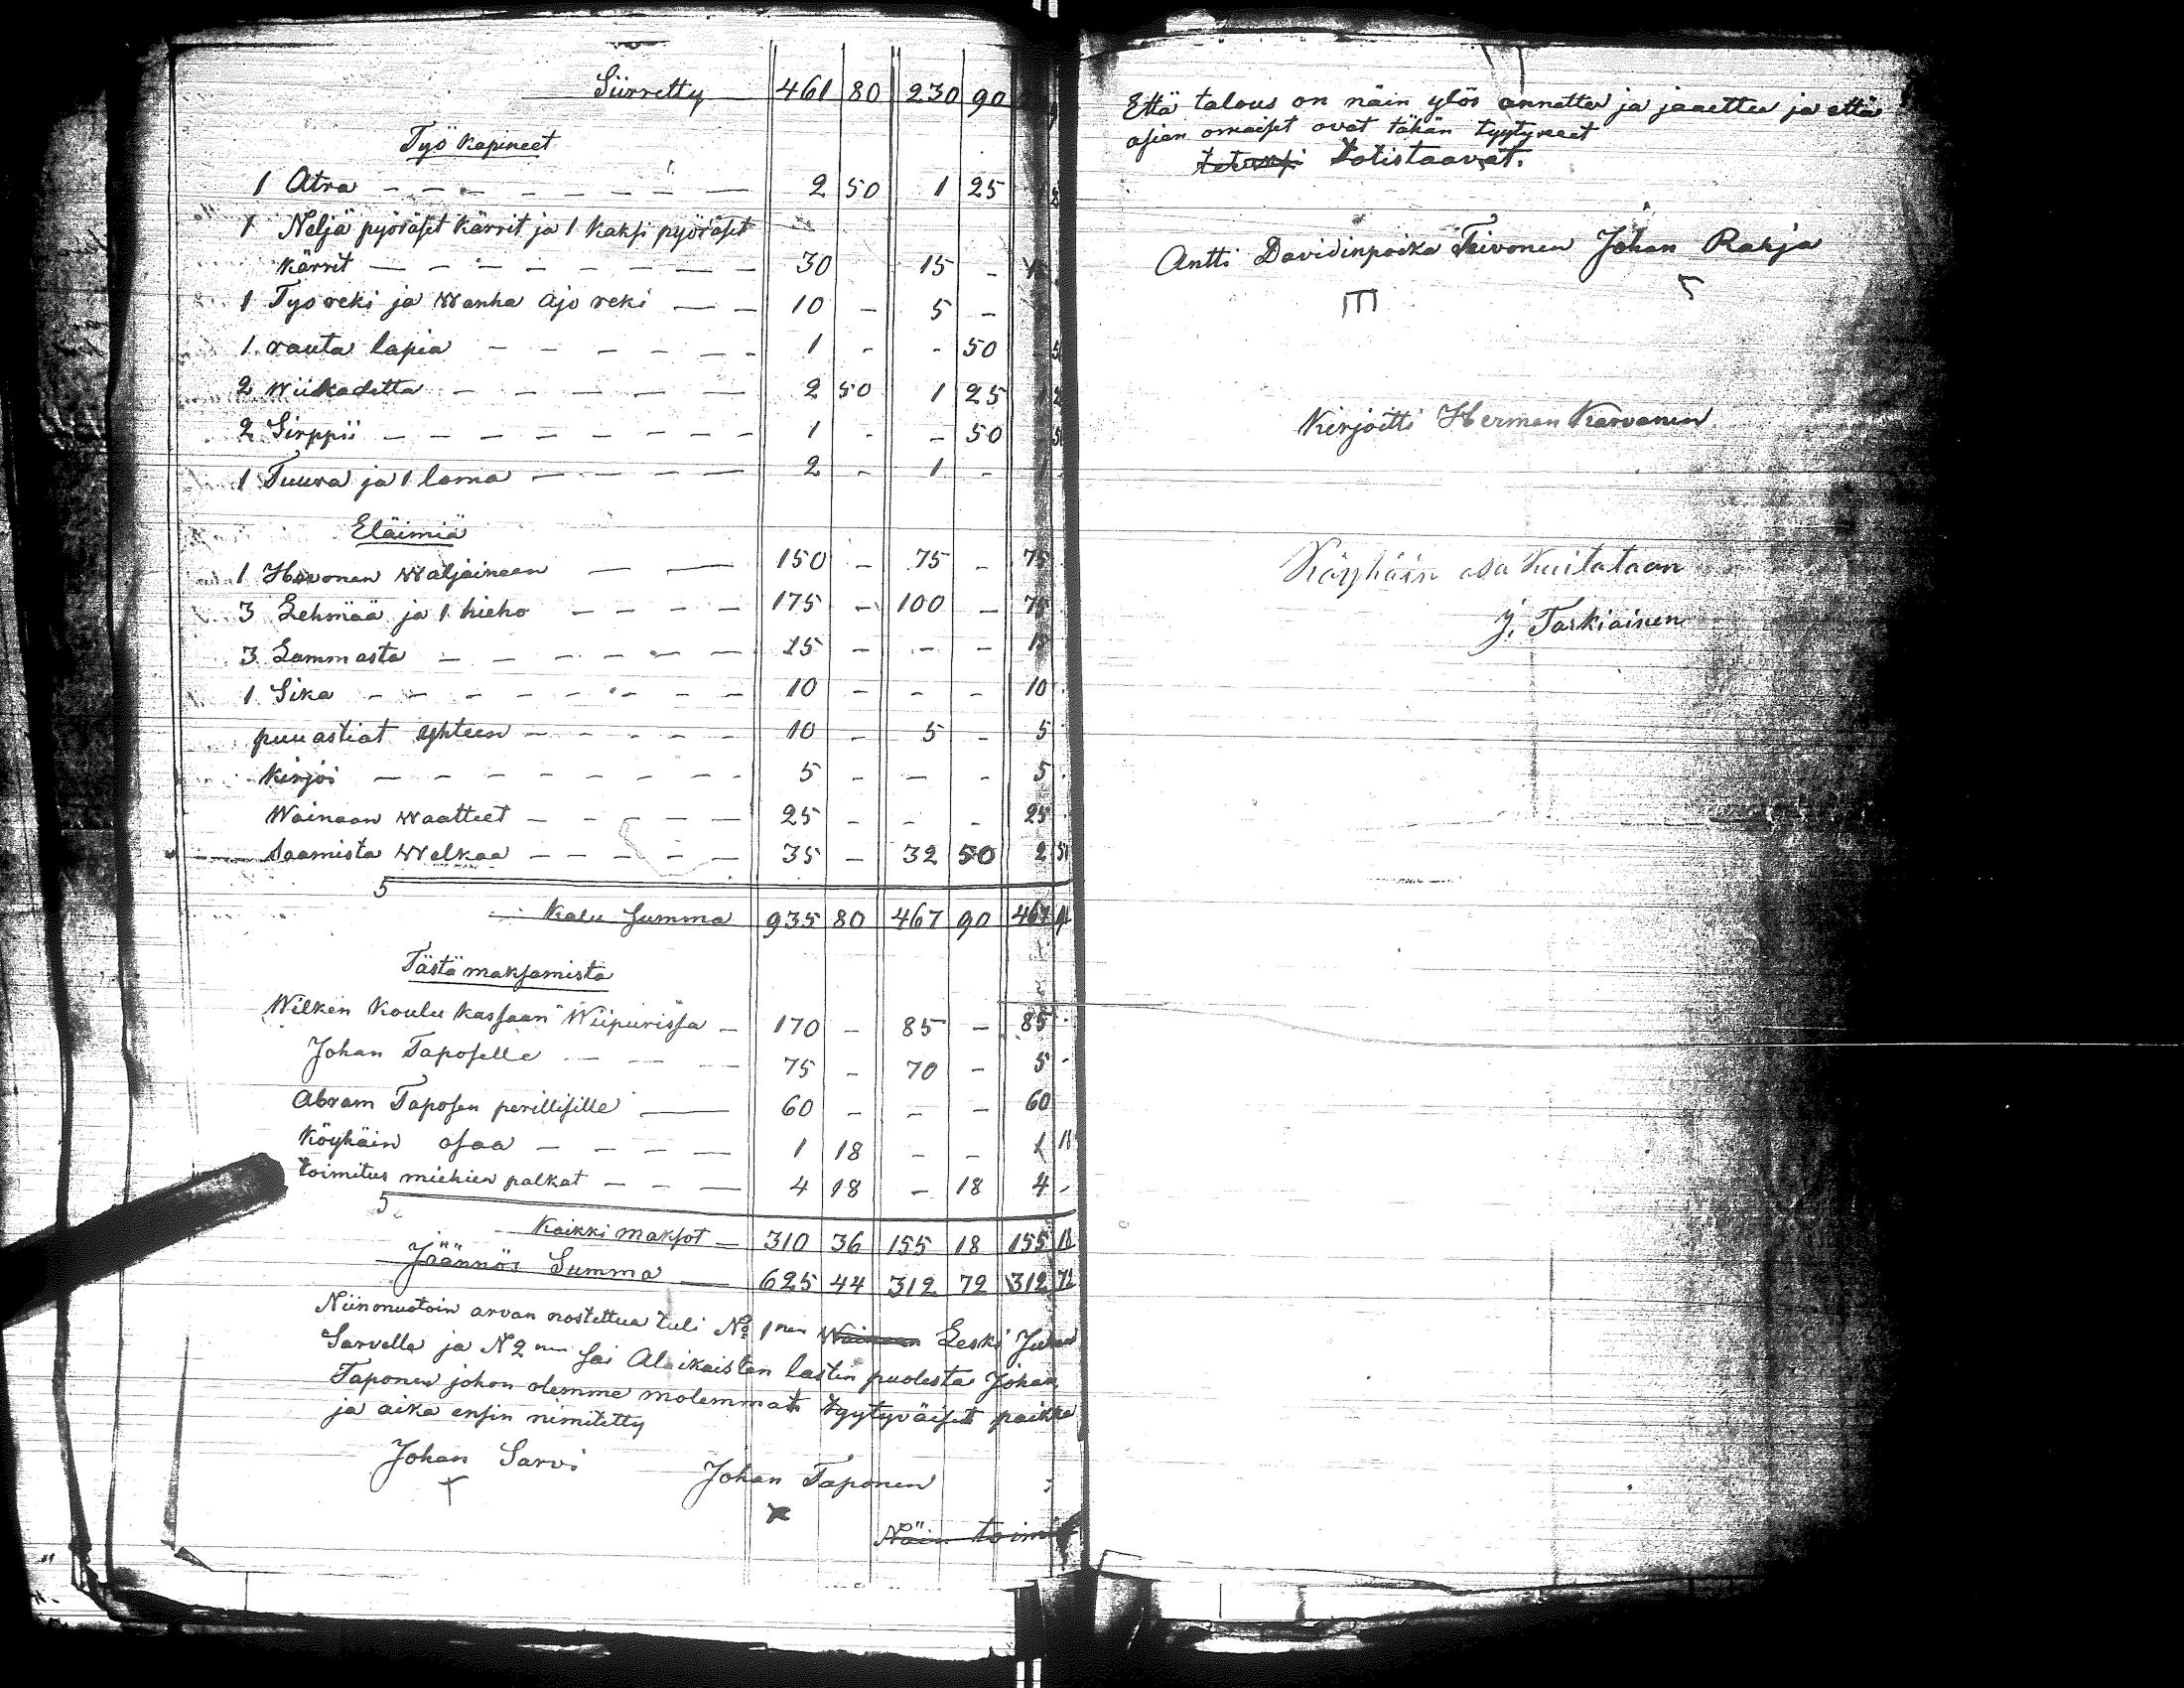 Siirretty 461 80 230 90
Työ kapineet
1 Atra - - - 2 50 1 25
1 Neljä pyöräset kärrit ja 1 kaksi pyöräset
kärrit - - - 30 15 -
1 Työ reki ja Wanha ajo reki - - 10 - 5 -
1 rauta lapia - - - 1 - - 50
2 Wiikadetta - - - 2 50 1 25
2 Sirppii - - - 1 - - 50
1 Tuura ja 1 lama - - - 2 - 1 - 1
Eläimiä
1 Hevonen Waljaineen - - 150 - 75 - 75
3 Lehmää ja 1 hieho - - - 175 - 100 - 75
3 Lammasta - - - 15 - - - 15
1 Sika - - - 10 - - - 10
puu astiat yhteen - - - 10 - 5 - 5
kirjoi - - - 5 - - - 5
Wainaan Waatteet - - - 25 - - - 25
Saamista Welkaa - - - 35 - 32 50 2 50
5
Kalu Summa 935 80 467 90 467 90
Tästä maksamista
Wilken Koulu kassaan Wiipurissa - 170 - 85 - 85
Johan Taposelle - - - 75 - 70 - 5 -
Abram Taposen perillisille - 60 - - - 60
Köyhäin osaa - - - 1 18 - - 1 18
toimitus miehien palkat - - - 4 18 - 18 4 -
5
Kaikki maksot - 310 36 155 18 155 18
Jäännös Summa - 625 44 312 72 312 72
Niinmuotoin arvan nostettua tuli No 1nen Wainaan Leski Juhan
Sarvella ja N 2nen sai Alaikaisten lastin puolesta Johan
Taponen johon olemme molemmat tyytyväiset paikka
ja aika ensin nimitetty
Johan Sarvi Johan Taponen
Näin toimi
Että talous on näin ylös annettu ja jaaettu ja että
asian omaiset ovat tähän tyytyneet
totistaavat.
Antti Davidinpoika Toivonen Johan Rahja
Kirjoitti Herman Karvanen
Köyhäin osa kuitataan
J. Tarkiainen